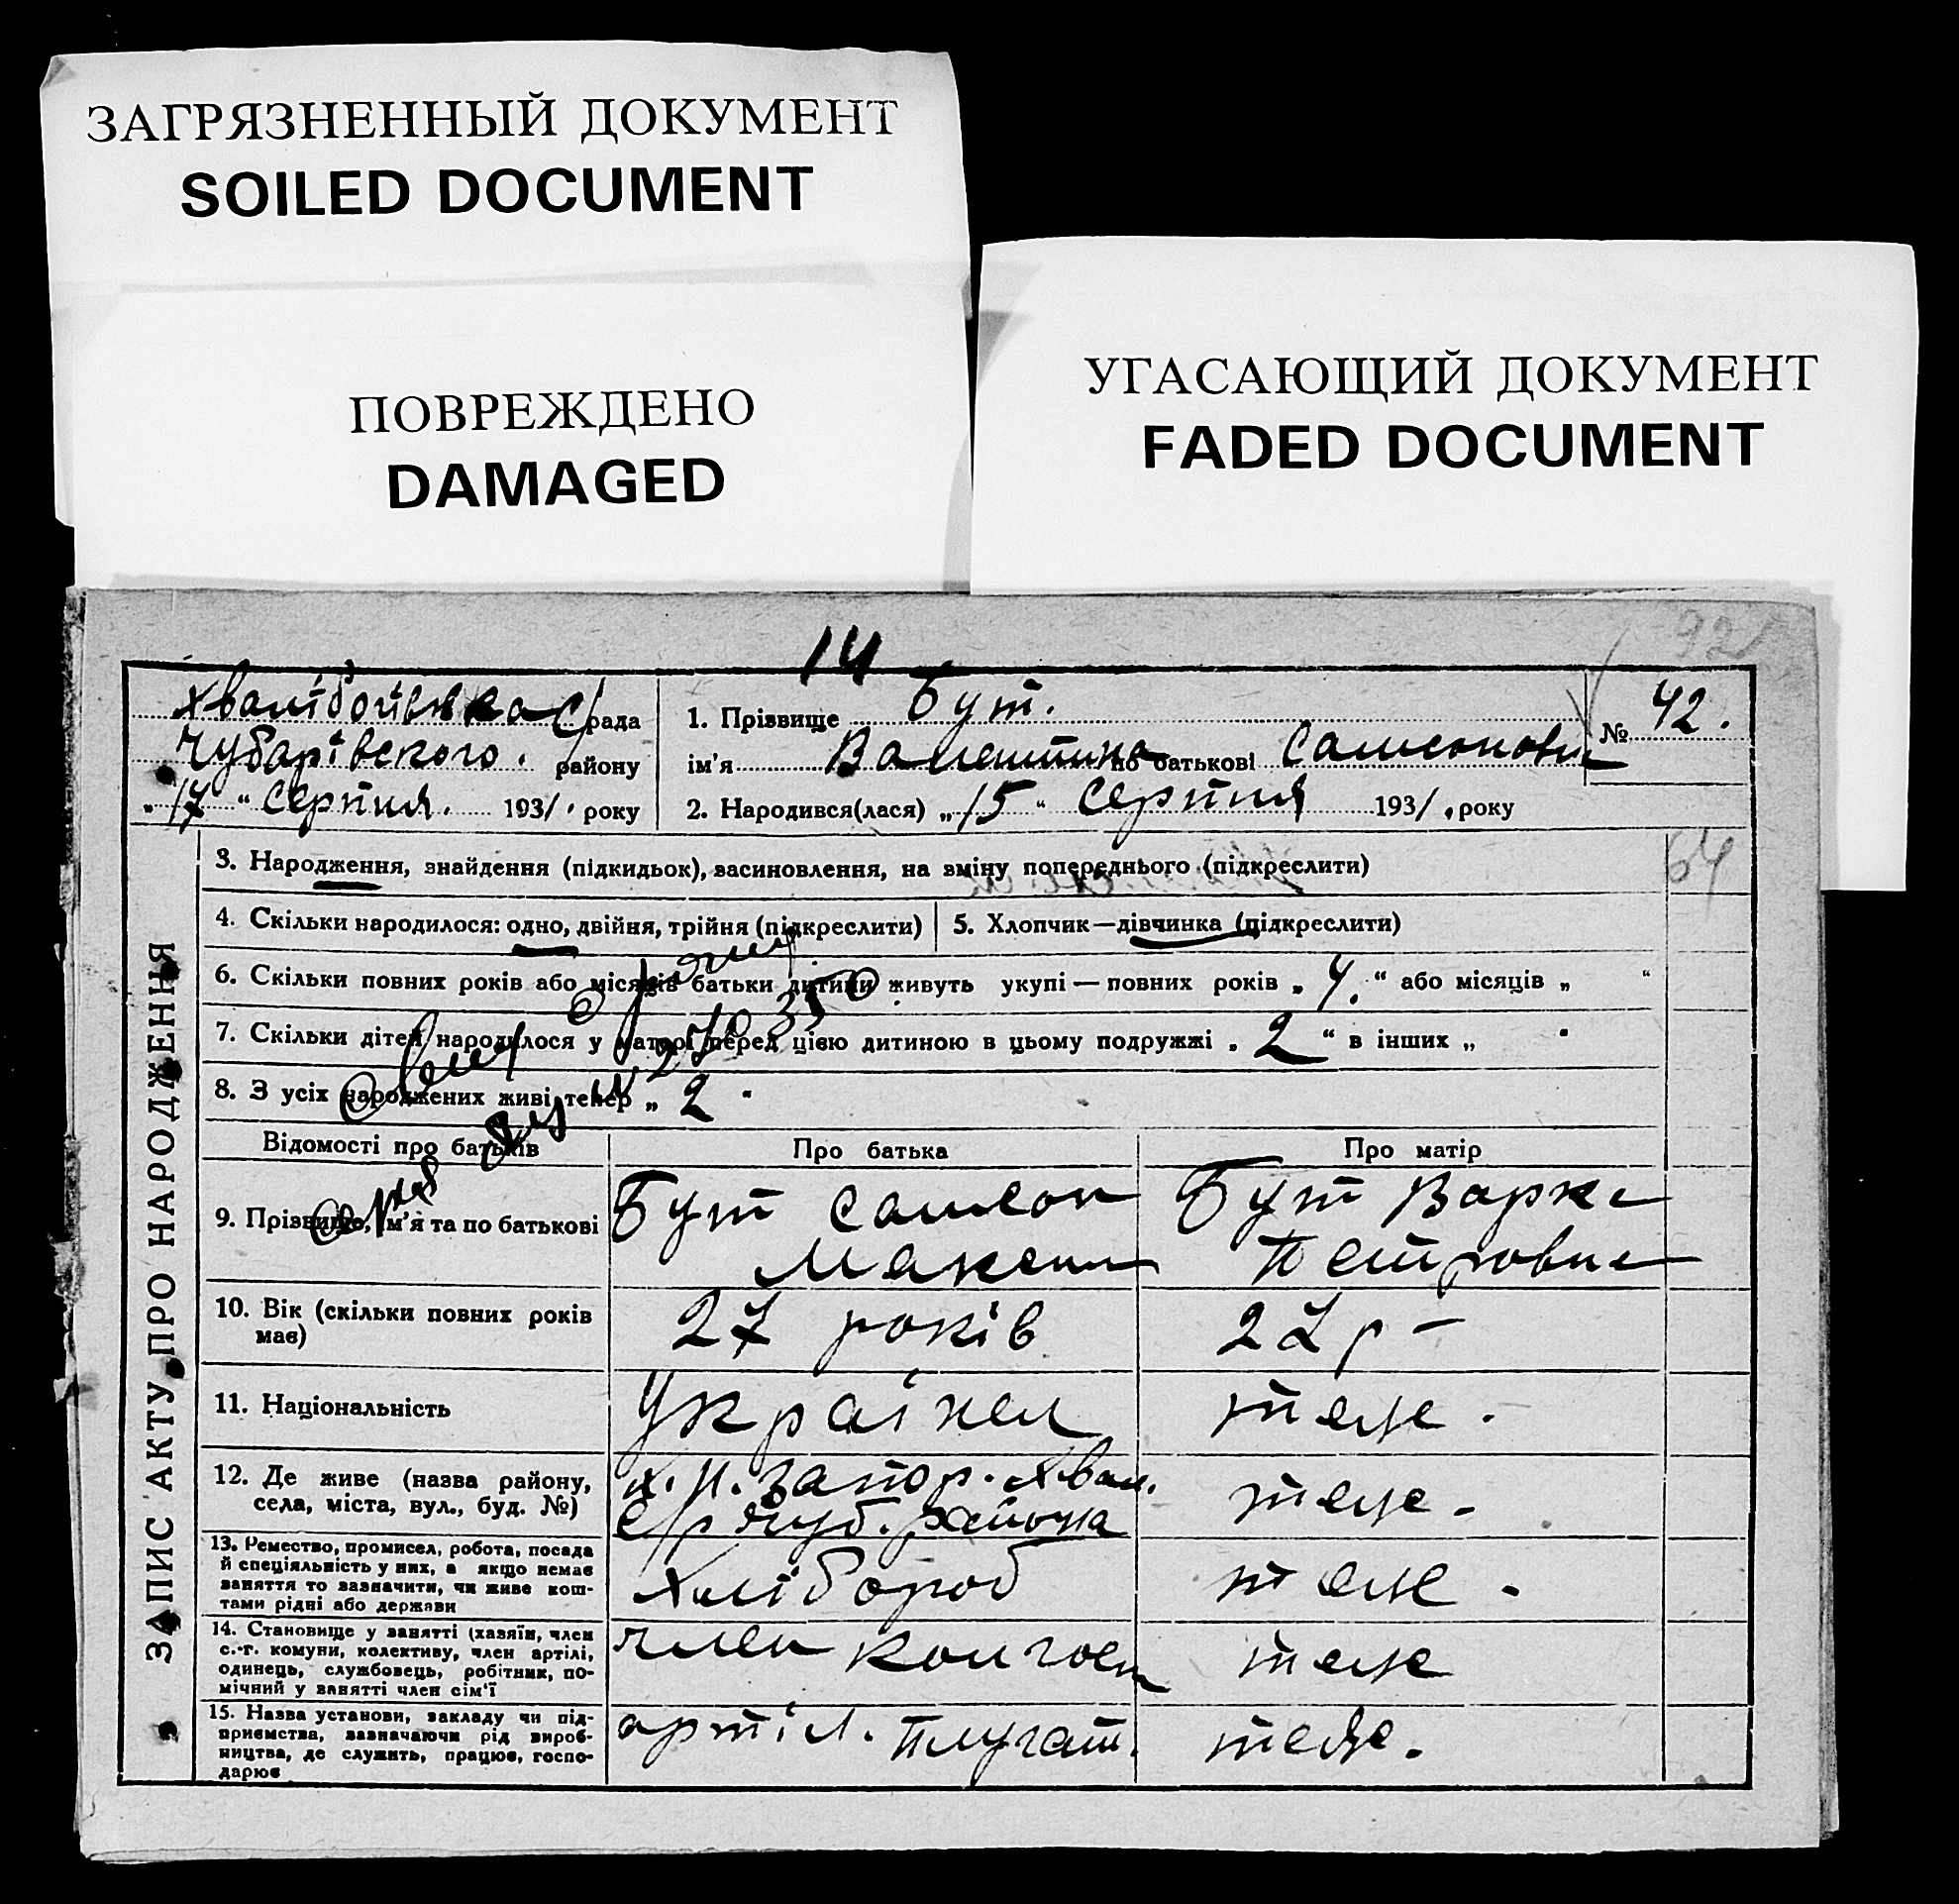 ЗАГРЯЗНЕННЫЙ ДОКУМЕНТ
SOILED DOCUMENT
ПОВРЕЖДЕНО
DAMAGED
УГАСАЮЩИЙ ДОКУМЕНТ
FADED DOCUMENT
14
92
рада
Чубарівского. району
„17" Серпня. 1931. року
1. Прізвище Бут.
ім'я Валентина по батькові Самсоновн
№ 42.
2. Народився(лася) „15" Серпня 1931. року
ЗАПИС АКТУ ПРО НАРОДЖЕННЯ
3. Народження, знайдення (підкидьок), васиновлення, на зміну попереднього (підкреслити)
64
4. Скільки народилося: одно, двійня, трійня (підкреслити)
5. Хлопчик—дівчинка (підкреслити)
6. Скільки повних років або місяців батьки дитини живуть укупі — повних років „4." або місяців „ "
7. Скільки дітей народилося у матері перед цією дитиною в цьому подружжі „2" в інших „ "
8. З усіх народжених живі тепер „2"
Відомості про батьків
Про батька
Про матір
9. Прізвище, ім'я та по батькові
Бут Самсон
Максим
Бут Варка
Петровна
10. Вік (скільки повних років
має)
27 років
27 р –
11. Національність
Українец
теже.
12. Де живе (назва району,
села, міста, вул., буд. №)
х. Н. Запор. Хвал.
с/р Чуб. района
теже.
13. Ремество, промисел, робота, посада
й спеціяльність у них, а якщо немає
заняття то зазначити, чи живе кош-
тами рідні або держави
Хлібороб
теже.
14. Становище у занятті (хазяїн, член
с.-г. комуни, колективу, член артілі,
одинець, службовець, робітник, по-
мічний у занятті член сім'ї
член колгосп
теже
15. Назва установи, закладу чи під-
приємства, зазначаючи рід вироб-
ництва, де служить, працює, госпо-
дарює
артіл. Плугат.
теже.